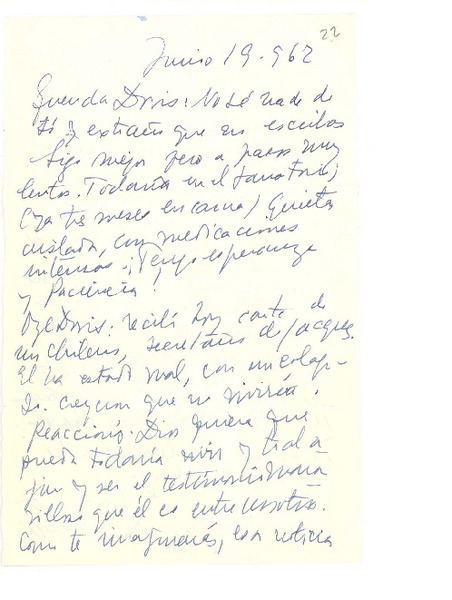 22
Junio 19-962
Querida Doris: No sé nada de
ti y extraño que no escribas
Sigo mejor pero a pasos muy
lentos. Todavía en el sanatorio;
(ya tres meses en cama) Quieta
aislada, con medicaciones
intensas. ¡Tengo esperanza
y Paciencia!
Oye Doris: recibí hoy carta de
un chileno, secretario de Jacques.
El ha estado mal, con un colap-
so. creyeron que no viviría.
Reaccionó. Dios quiera que
pueda todavía vivir y traba
jar y ser el testimonio mara
villoso que él es entre nosotros.
Como te imaginarás, esa noticia